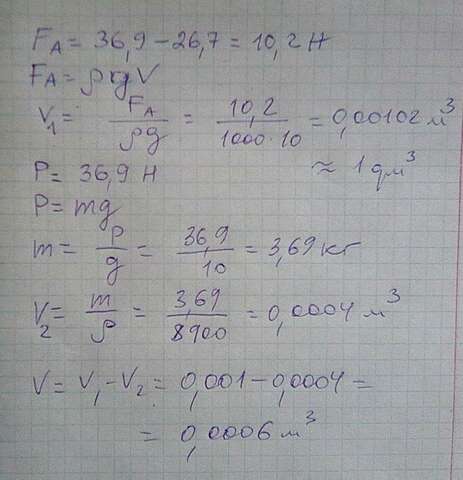 F_A = 36,9 - 26,7 = 10,2 Н
F_A = ρgV
V₁ = F_A/ρg = 10,2/1000·10 = 0,00102 м³
≈ 1 дм³
P = 36,9 Н
P = mg
m = P/g = 36,9/10 = 3,69 кг
V₂ = m/ρ = 3,69/8900 = 0,0004 м³
V = V₁ - V₂ = 0,001 - 0,0004 =
= 0,0006 м³